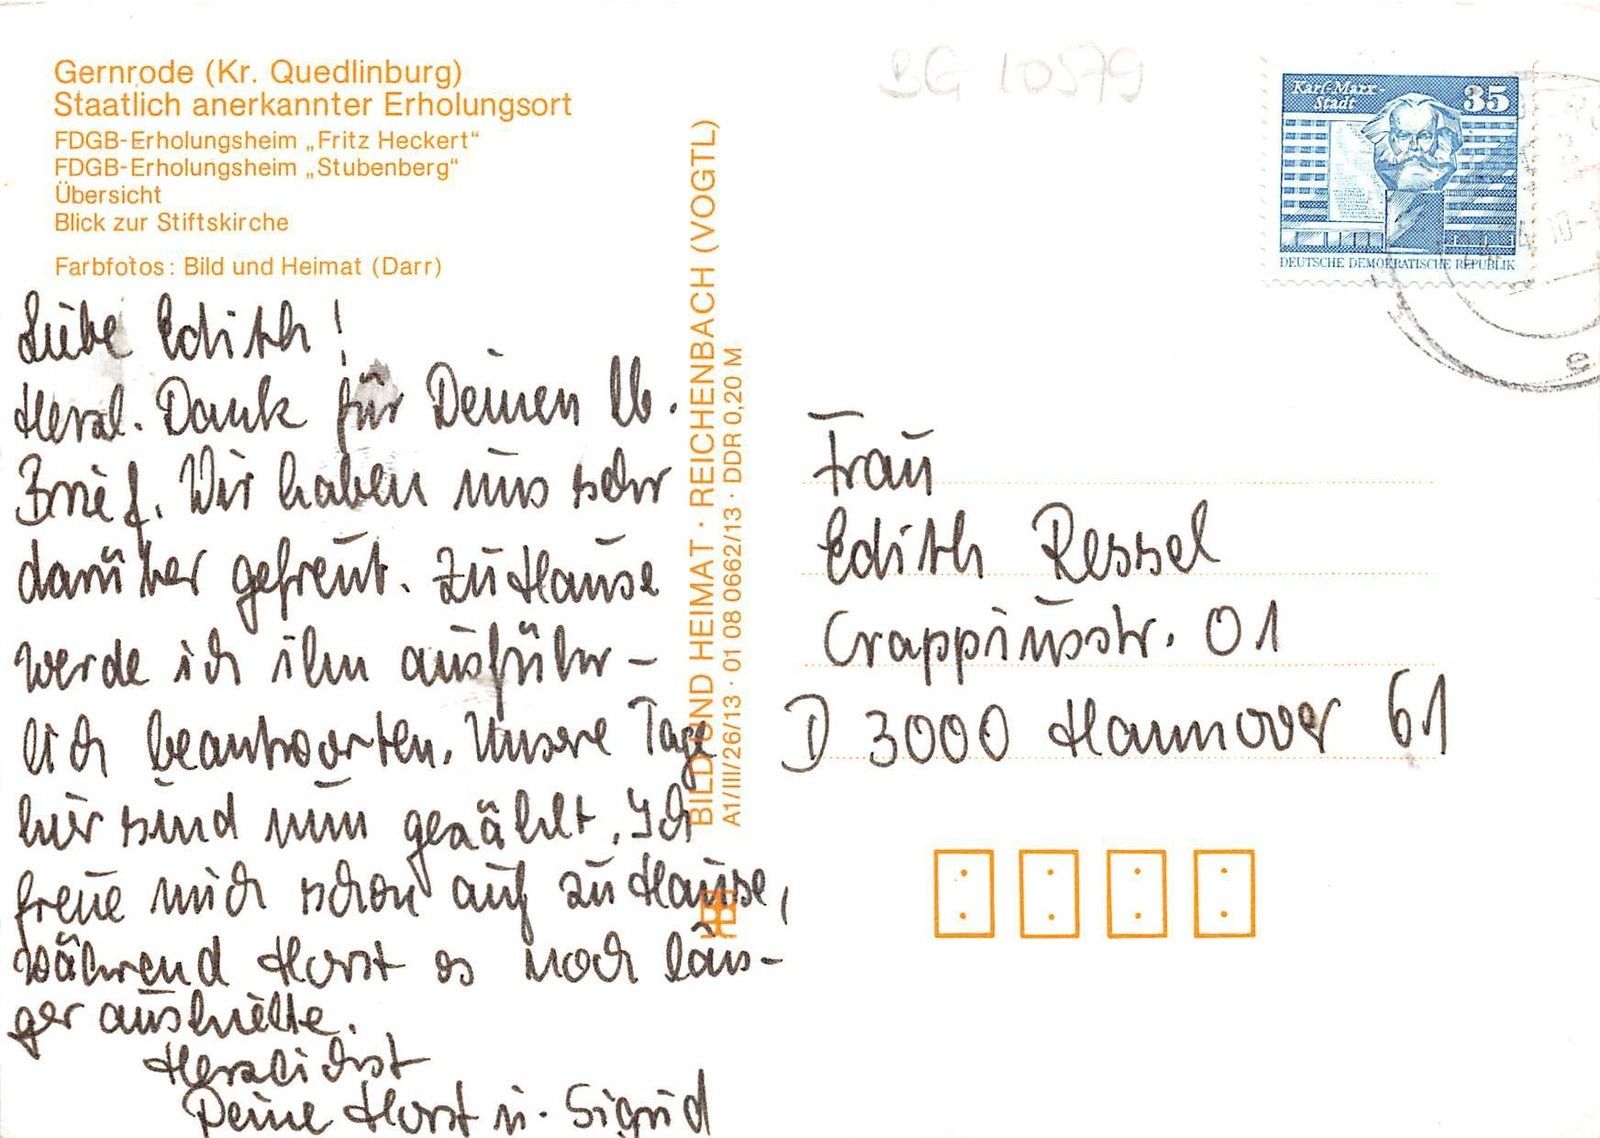 BG 10579
Gernrode (Kr. Quedlinburg)
Staatlich anerkannter Erholungsort
FDGB-Erholungsheim „Fritz Heckert“
FDGB-Erholungsheim „Stubenberg“
Übersicht
Blick zur Stiftskirche
Farbfotos: Bild und Heimat (Darr)
Liebe Edith!
Herzl. Dank für Deinen lb.
Brief. Wir haben uns sehr
darüber gefreut. Zu Hause
werde ich ihn ausführ-
lich beantworten. Unsere Tage
hier sind nun gezählt. Ich
freue mich schon auf zu Hause,
während Horst es noch län-
ger aushielte.
Herzlichst
Deine Horst u. Sigrid
BILD UND HEIMAT · REICHENBACH (VOGTL)
A1/III/26/13 · 01 08 0662/13 · DDR 0,20 M
Karl-Marx-
Stadt
35
DEUTSCHE DEMOKRATISCHE REPUBLIK
e
Frau
Edith Ressel
Crappiusstr. 01
D 3000 Hannover 61